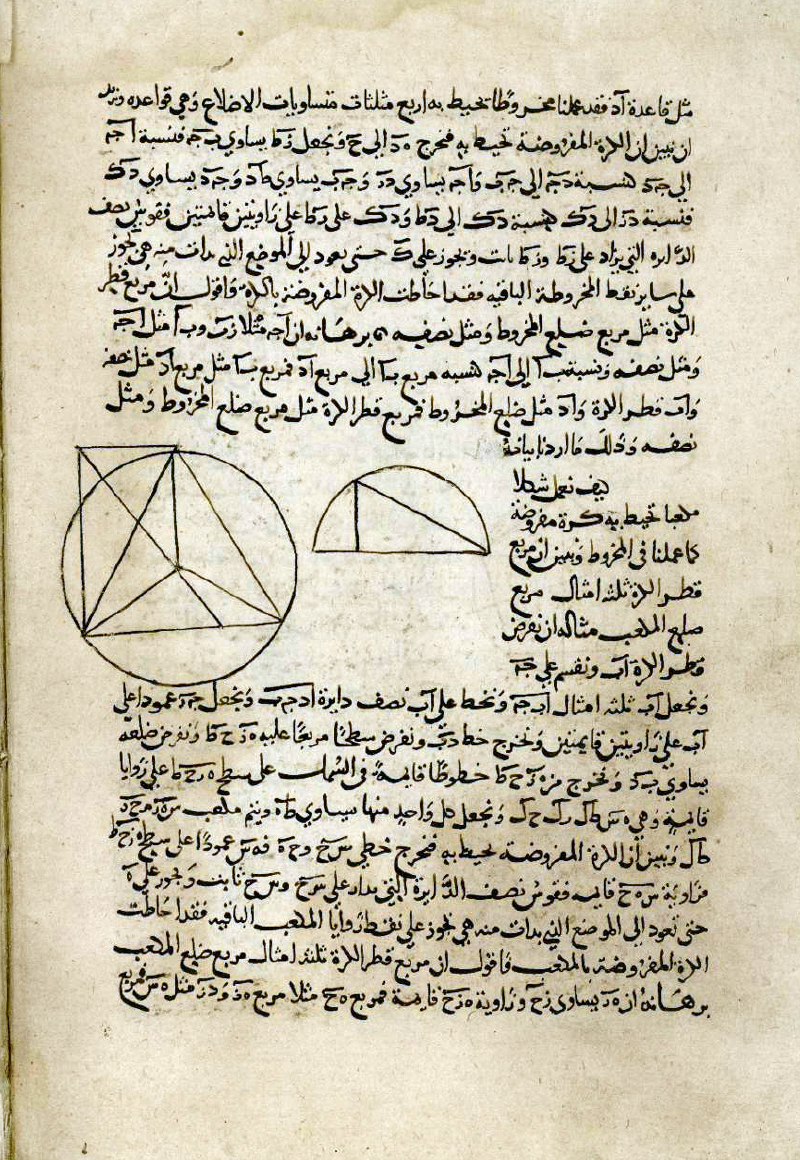 مثل قاعدة آد فقد عملنا مخروطا يحيط به اربع مثلثات متساويات الاضلاع وهي قواعده ونريد
ان نبين ان الكرة المفروضة تحيط به فنخرج هد الى ح ونجعل زط يساوي بج فنسبة اج
الى جد كنسبة دج الى جب واج يساوي وجب يساوي طد وجد يساوي دك
فنسبة دز الى دك كنسبة دك الى دط ودك على زط على زاويتين قايمتين فقوس نصف
الدايره التي يزاد على زط وزط ثابت وتجوز على ك حتى يعود الى الموضع الذي بدات منه هي تجوز
على ساير نقط المخروطة الباقيه فقد احاطت الكرة المفروضة واقول ان مربع قطر
الكرة مثل مربع ضلع المخروط ومثل نصفه برهانه ان اج مثلا جب وبا مثل اج
ومثل نصفه ونسبة با الى اج كنسبه مربع با الى مربع اد فمربع با مثل مربع اد مثل نصفه
واب قطر الكرة واد مثل ضلع المخروط فمربع قطر الكرة مثل مربع ضلع المخروط ومثل
نصفه وذلك ما اردنا بيانه
كيف نعمل شكلا
مكعبا تحيط به كرة مفروضة
كما عملنا في المخروط ونبين ان مربع
قطر الكرة ثلثه امثال مربع
ضلع المكعب مثاله ان نفرض
قطر الكرة اب ونقسم على ج
ونجعل اب ثلثه امثال ج ونخط على اب نصف دايرة ادب ونجعل جد عمودا على
اب على زاويتين قايمتين ونخرج خط دب ونفرض سطحا مربعا عليه هزحط ونفرض ضلعه
يساوي بد ونخرج من هزحط خطوطا قايمة في السمك على سطح هزحط على زوايا
قايمة وهي طل حك ونجعل كل واحد منها يساوي طه ونتم مكعب
ونبين ان الكرة المفروضة تحيط به فنخرج خطي سح وحه فهس عمود على سطح هزحط
فزاوية سهح قايمه فقوس نصف الدايرة التي تدار على سح وسح ثابت وتجوز على ه
حتى تعود الى الموضع الذي بدات منه هي تجوز على نقط زوايا المكعب الباقيه فقد احاطت
الكرة المفروضة بالمكعب فاقول ان مربع قطر الكرة ثلثه امثال مربع ضلع المكعب
برهانه ان هز يساوي زح وزاوية هزح قايمة فمربع هح مثلا مربع هز وهز مثل هس فمربع